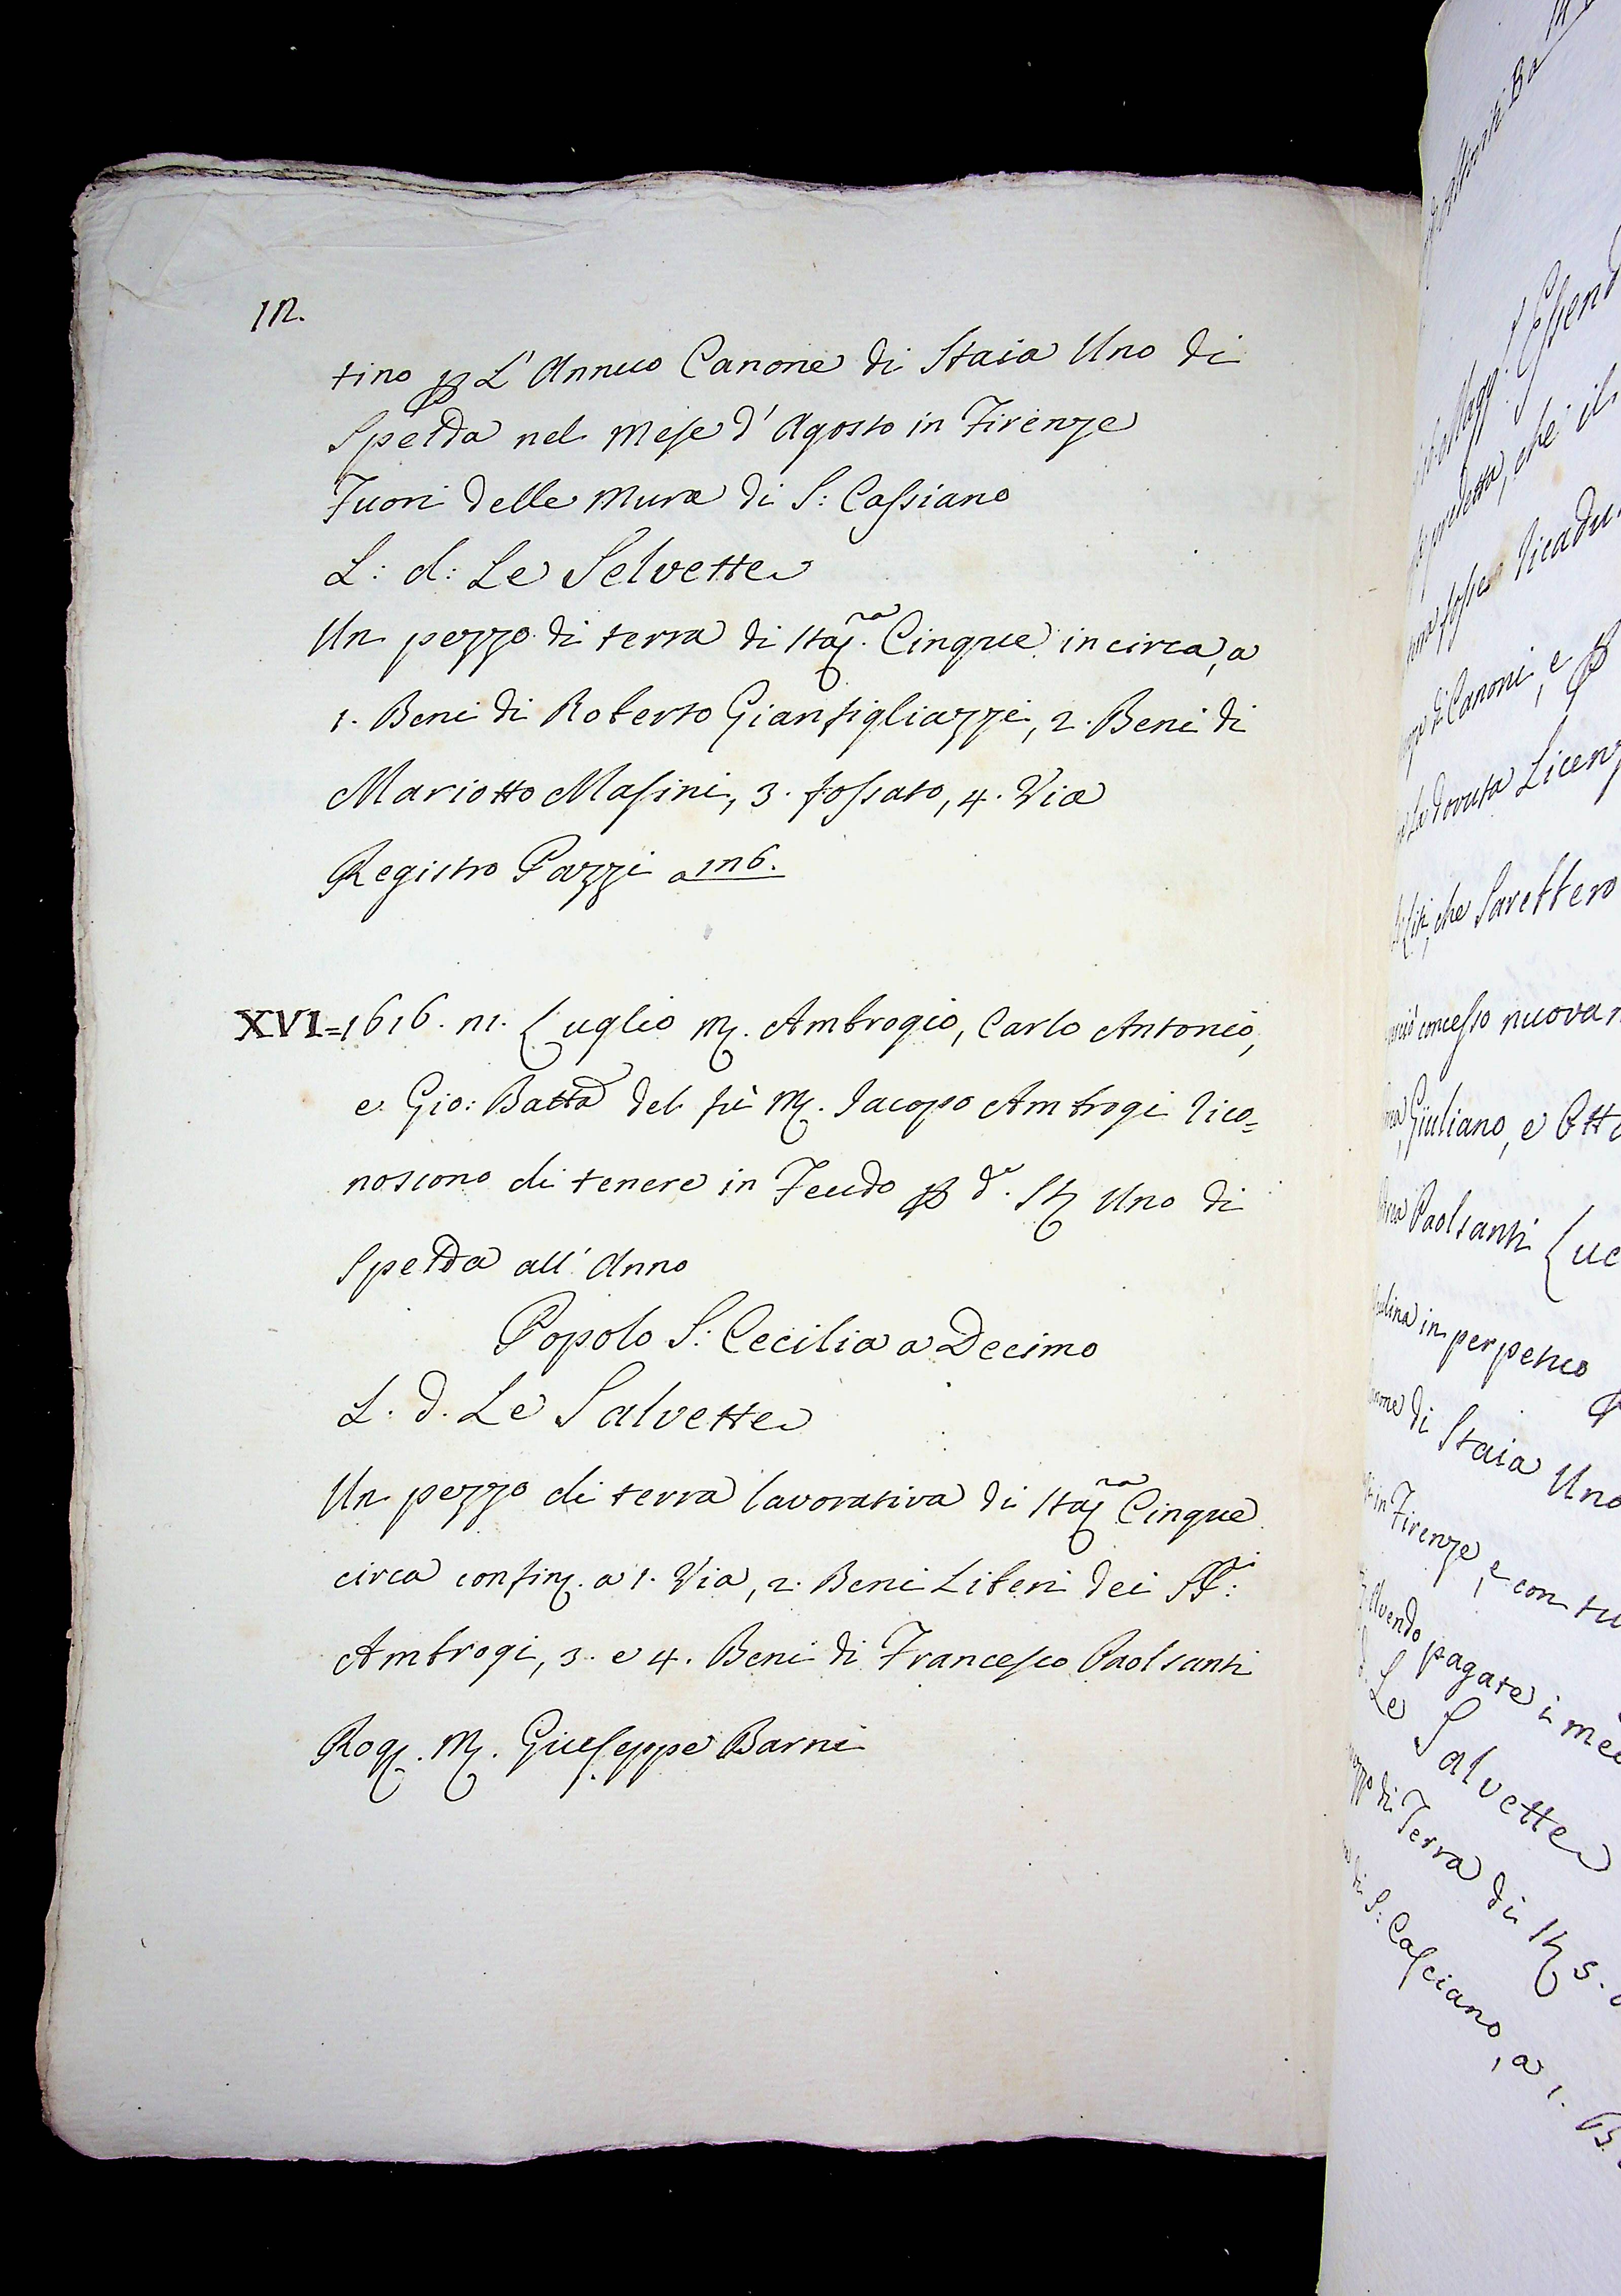 12.
tino p L' Annuo Canone di Staia Uno di
Spelda nel Mese d' Agosto in Firenze
Fuori delle Mura di S: Cassiano
L: d: Le Selvette
Un pezzo di terra di Staj.ra Cinque in circa, a
1. Beni di Roberto Gianfigliazzi, 2. Beni di
Mariotto Masini, 3. fossato, 4. Via
Registro Pazzi a 126.
XVI = 1616. 21. Luglio M. Ambrogio, Carlo Antonio,
e Gio: Batta del fù M. Jacopo Ambrogi rico=
noscono di tenere in Feudo p d.o St Uno di
Spelda all' Anno
Popolo S: Cecilia a Decimo
L. d. Le Salvette
Un pezzo di terra lavorativa di Staj.ra Cinque
circa confin. a 1. Via, 2. Beni Liberi dei SS.ri:
Ambrogi, 3. e 4. Beni di Francesco Paolsanti
Rog. M. Giuseppe Barni
Essend
predetta, che il
fosse ricadu
di Canoni, e p
La dovuta Licenz
che Sarebbero
concesso nuovam
Giuliano, e Otta
Paolsanti Luc
in perpetuo
di Staia Uno
in Firenze, e con tu
pagare i med
Le Salvette
di Terra di St 5.
di S: Casciano, a 1. B